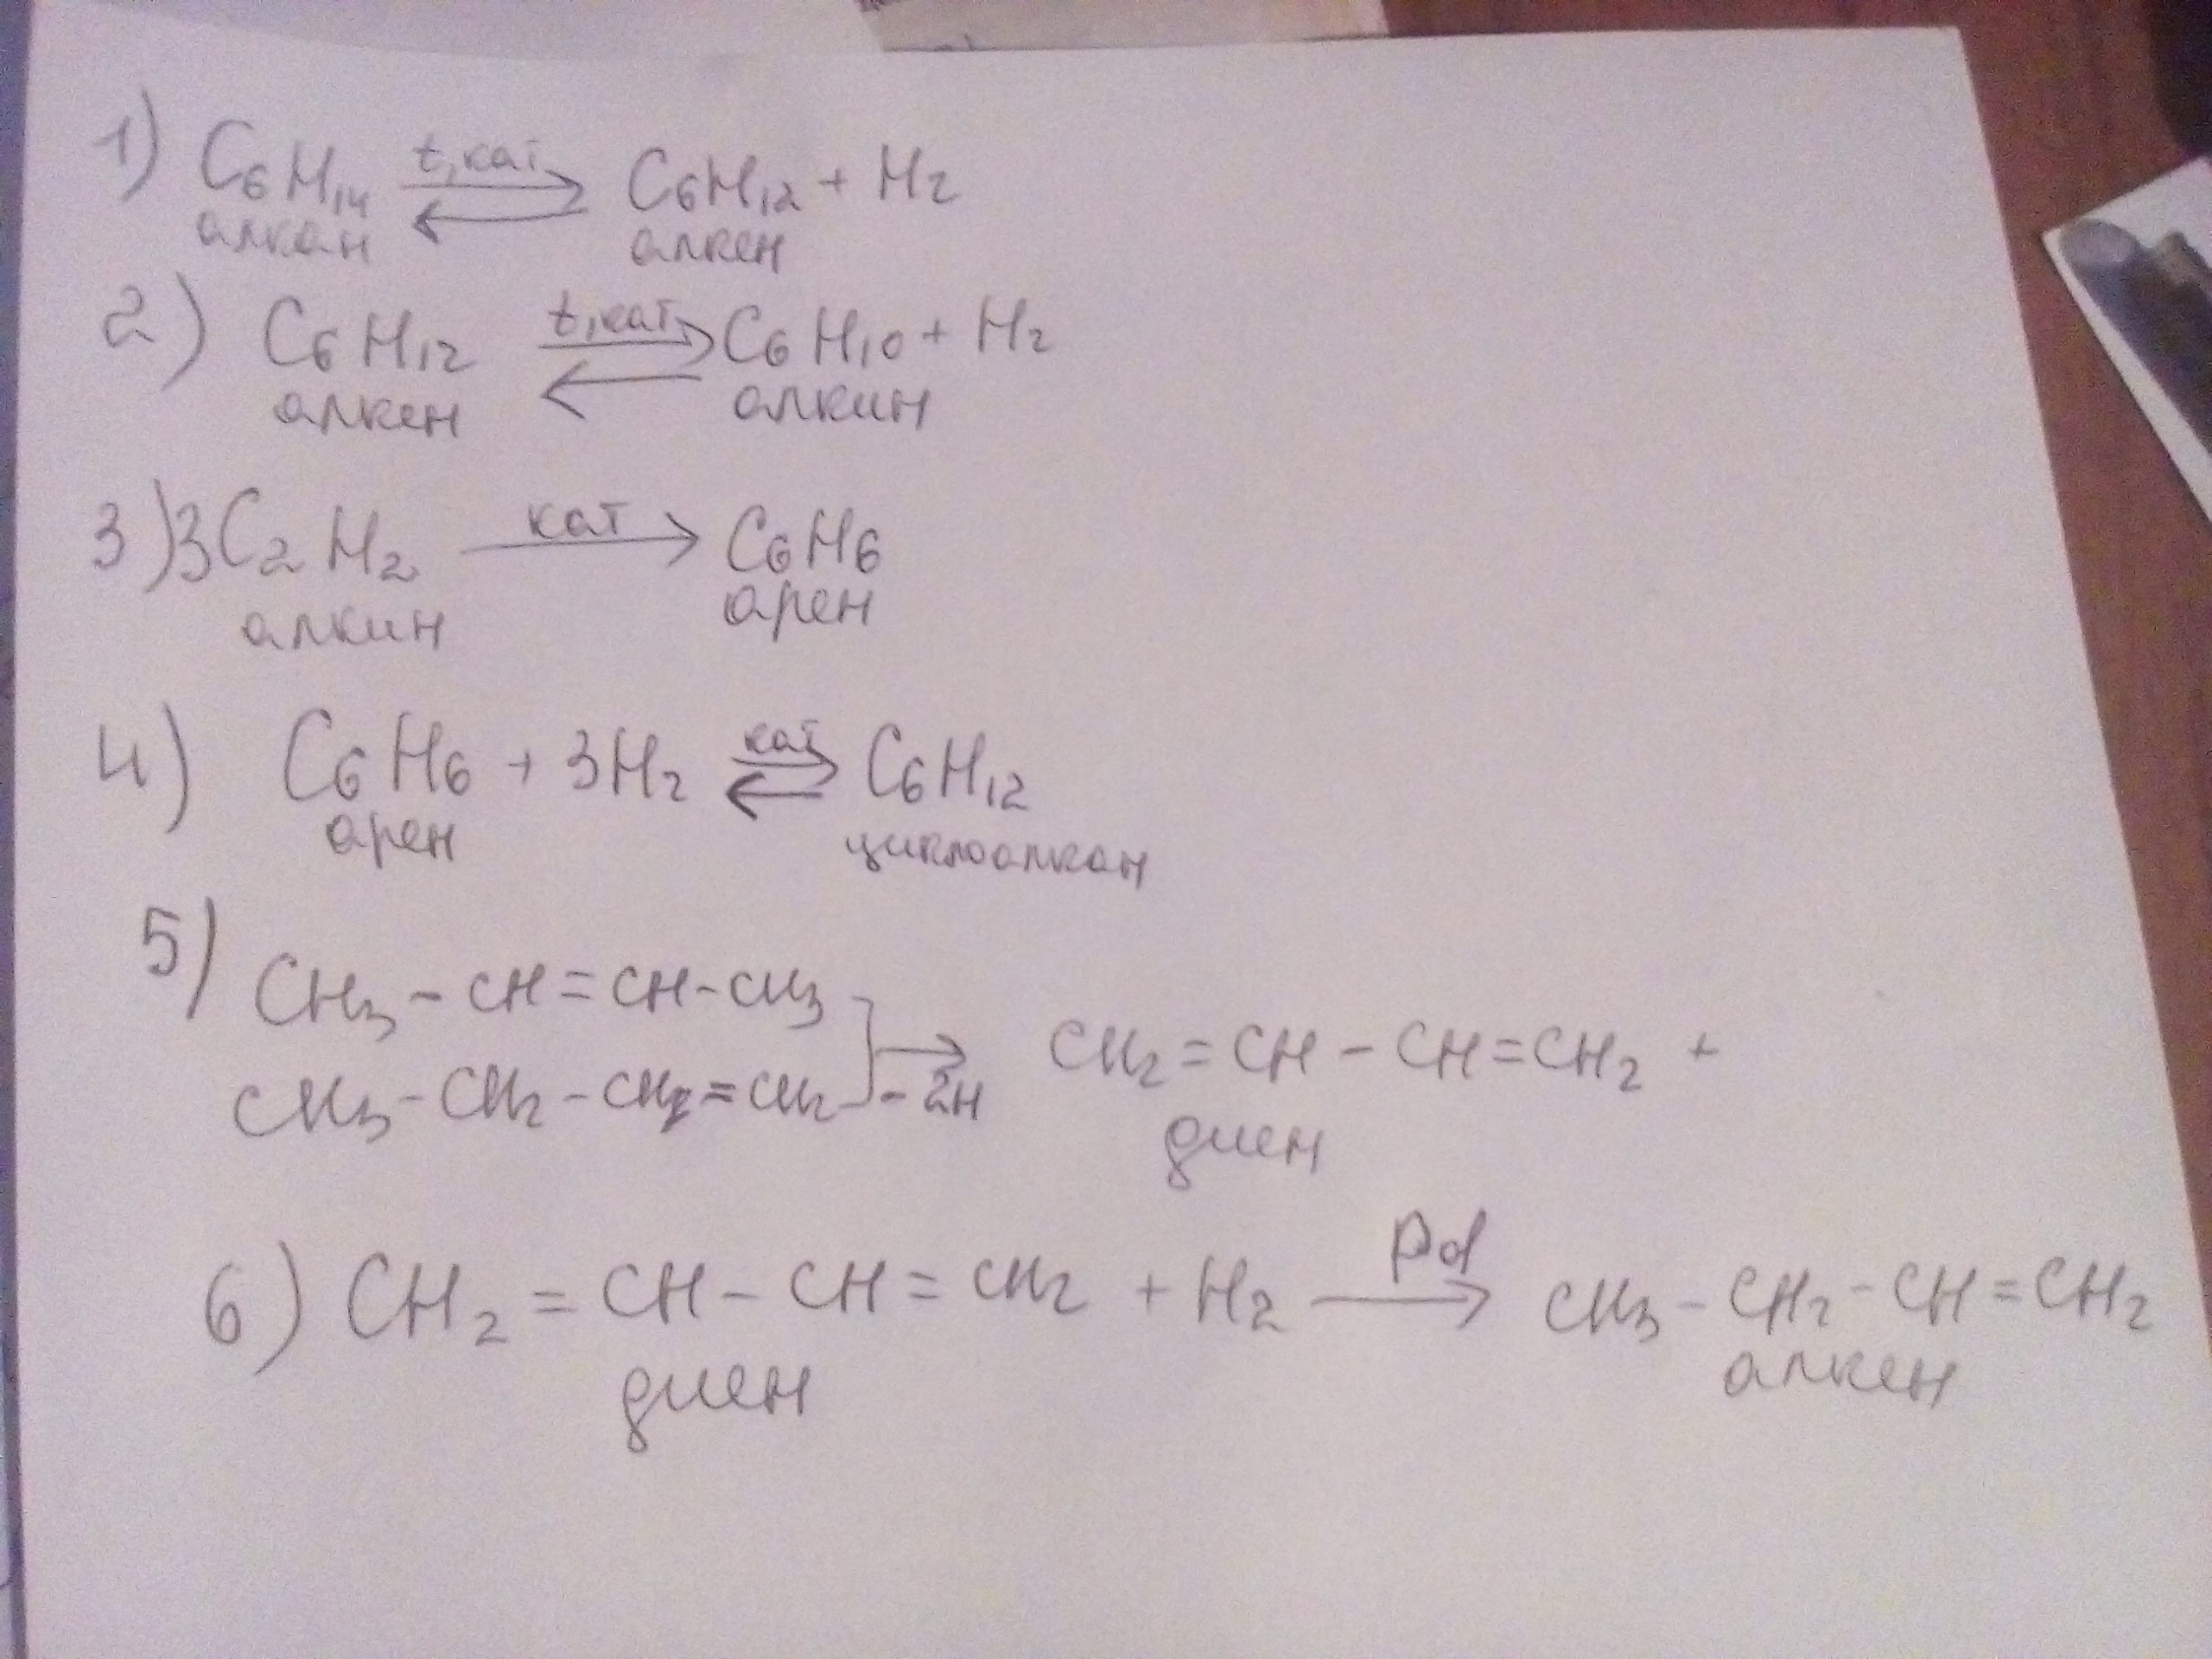 1) C₆H₁₄ ⇄ t, кат C₆H₁₂ + H₂
алкан алкен
2) C₆H₁₂ ⇄ t, кат C₆H₁₀ + H₂
алкен алкин
3) 3C₂H₂ кат → C₆H₆
алкин арен
4) C₆H₆ + 3H₂ ⇄ кат C₆H₁₂
арен циклоалкан
5) CH₃ - CH = CH - CH₃
CH₃ - CH₂ - CH₂ = CH₂ → - 2H CH₂ = CH - CH = CH₂ +
диен
6) CH₂ = CH - CH = CH₂ + H₂ Pd → CH₃ - CH₂ - CH = CH₂
диен алкен